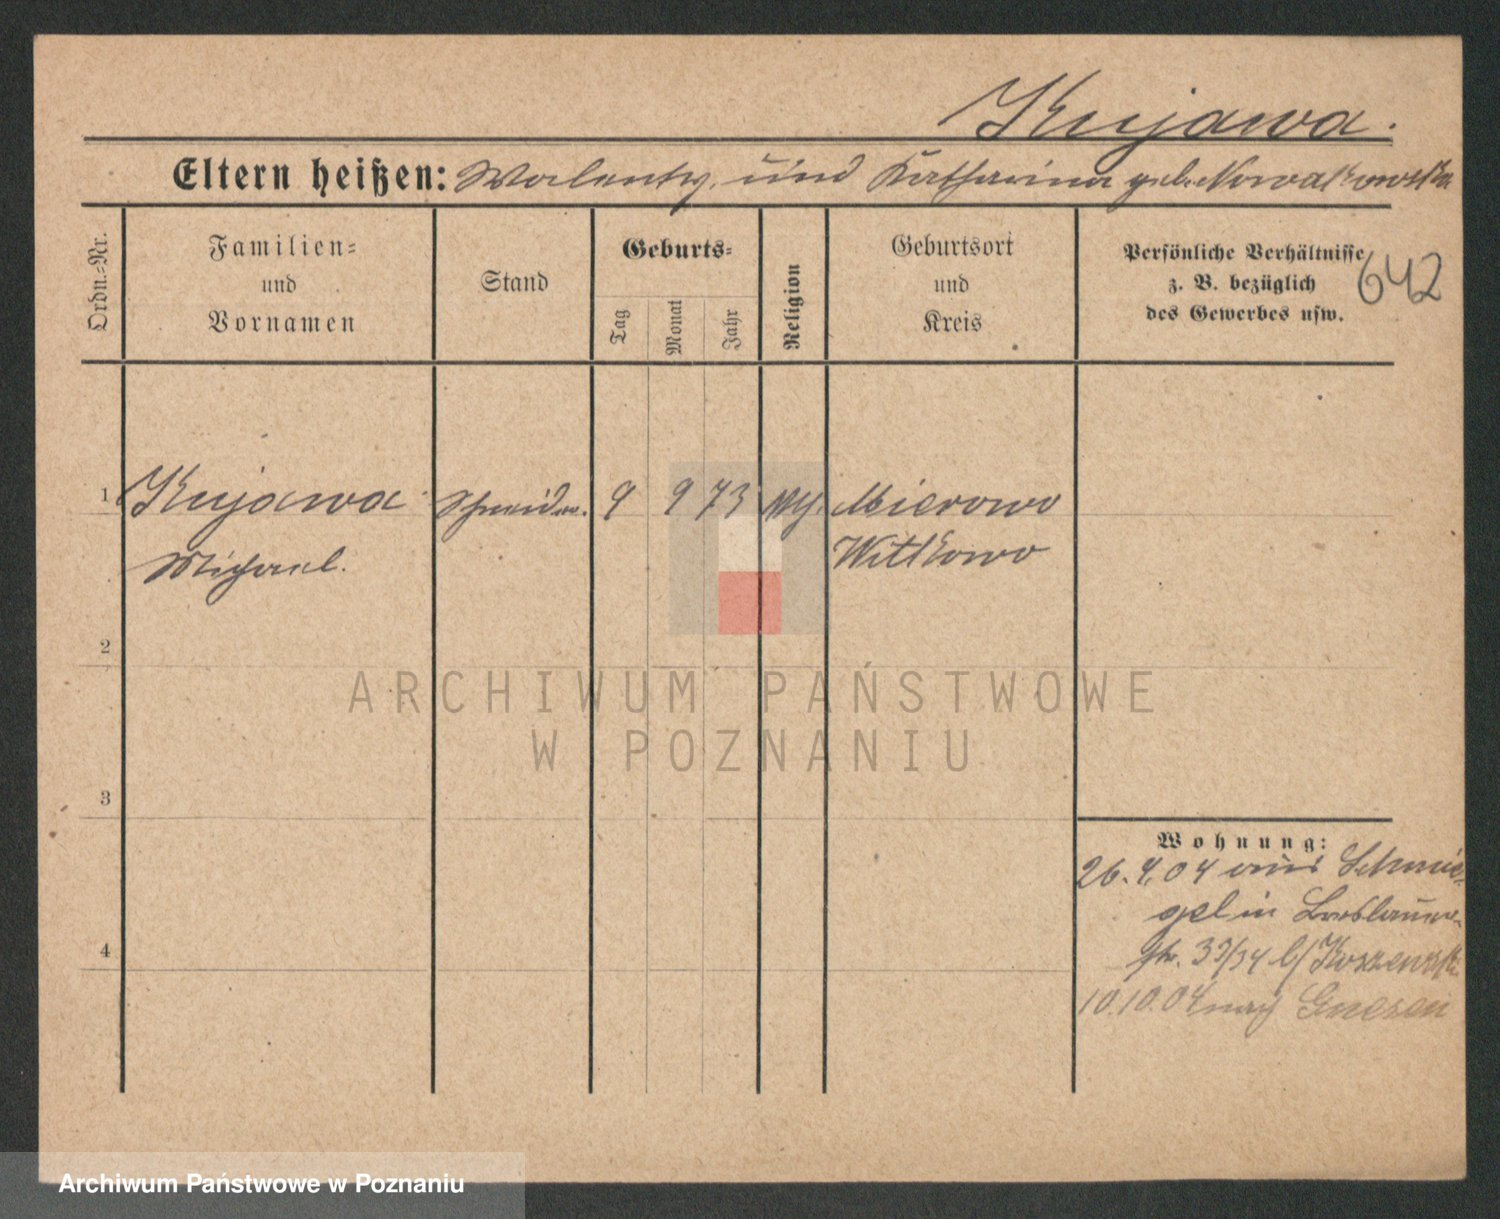 Kujawa.
Eltern heißen: Walenty und Katharina geb. Nowakowska
Ordn.-Nr.
Familien-
und
Vornamen
Stand
Geburts-
Tag
Monat
Jahr
Religion
Geburtsort
und
Kreis
Persönliche Verhältnisse
z. B. bezüglich
des Gewerbes usw.
642
1 Kujawa Schneider. 9 9 73 Mierowo
Michael. Wittkowo
2
3
4
Wohnung:
26.4.04 aus Schmie-
gel in Breslauer-
str. 33/34 b/
10.10.04 nach Gnesen
ARCHIWUM PAŃSTWOWE
W POZNANIU
Archiwum Państwowe w Poznaniu